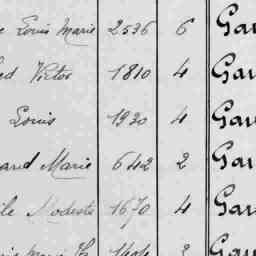 Louis Marie 2536 6 Gau
Victor 1810 4 Gau
Louis 1930 4 Gau
ard Marie 642 2 Gau
Modeste 1670 4 Gau
1404 2 Gau